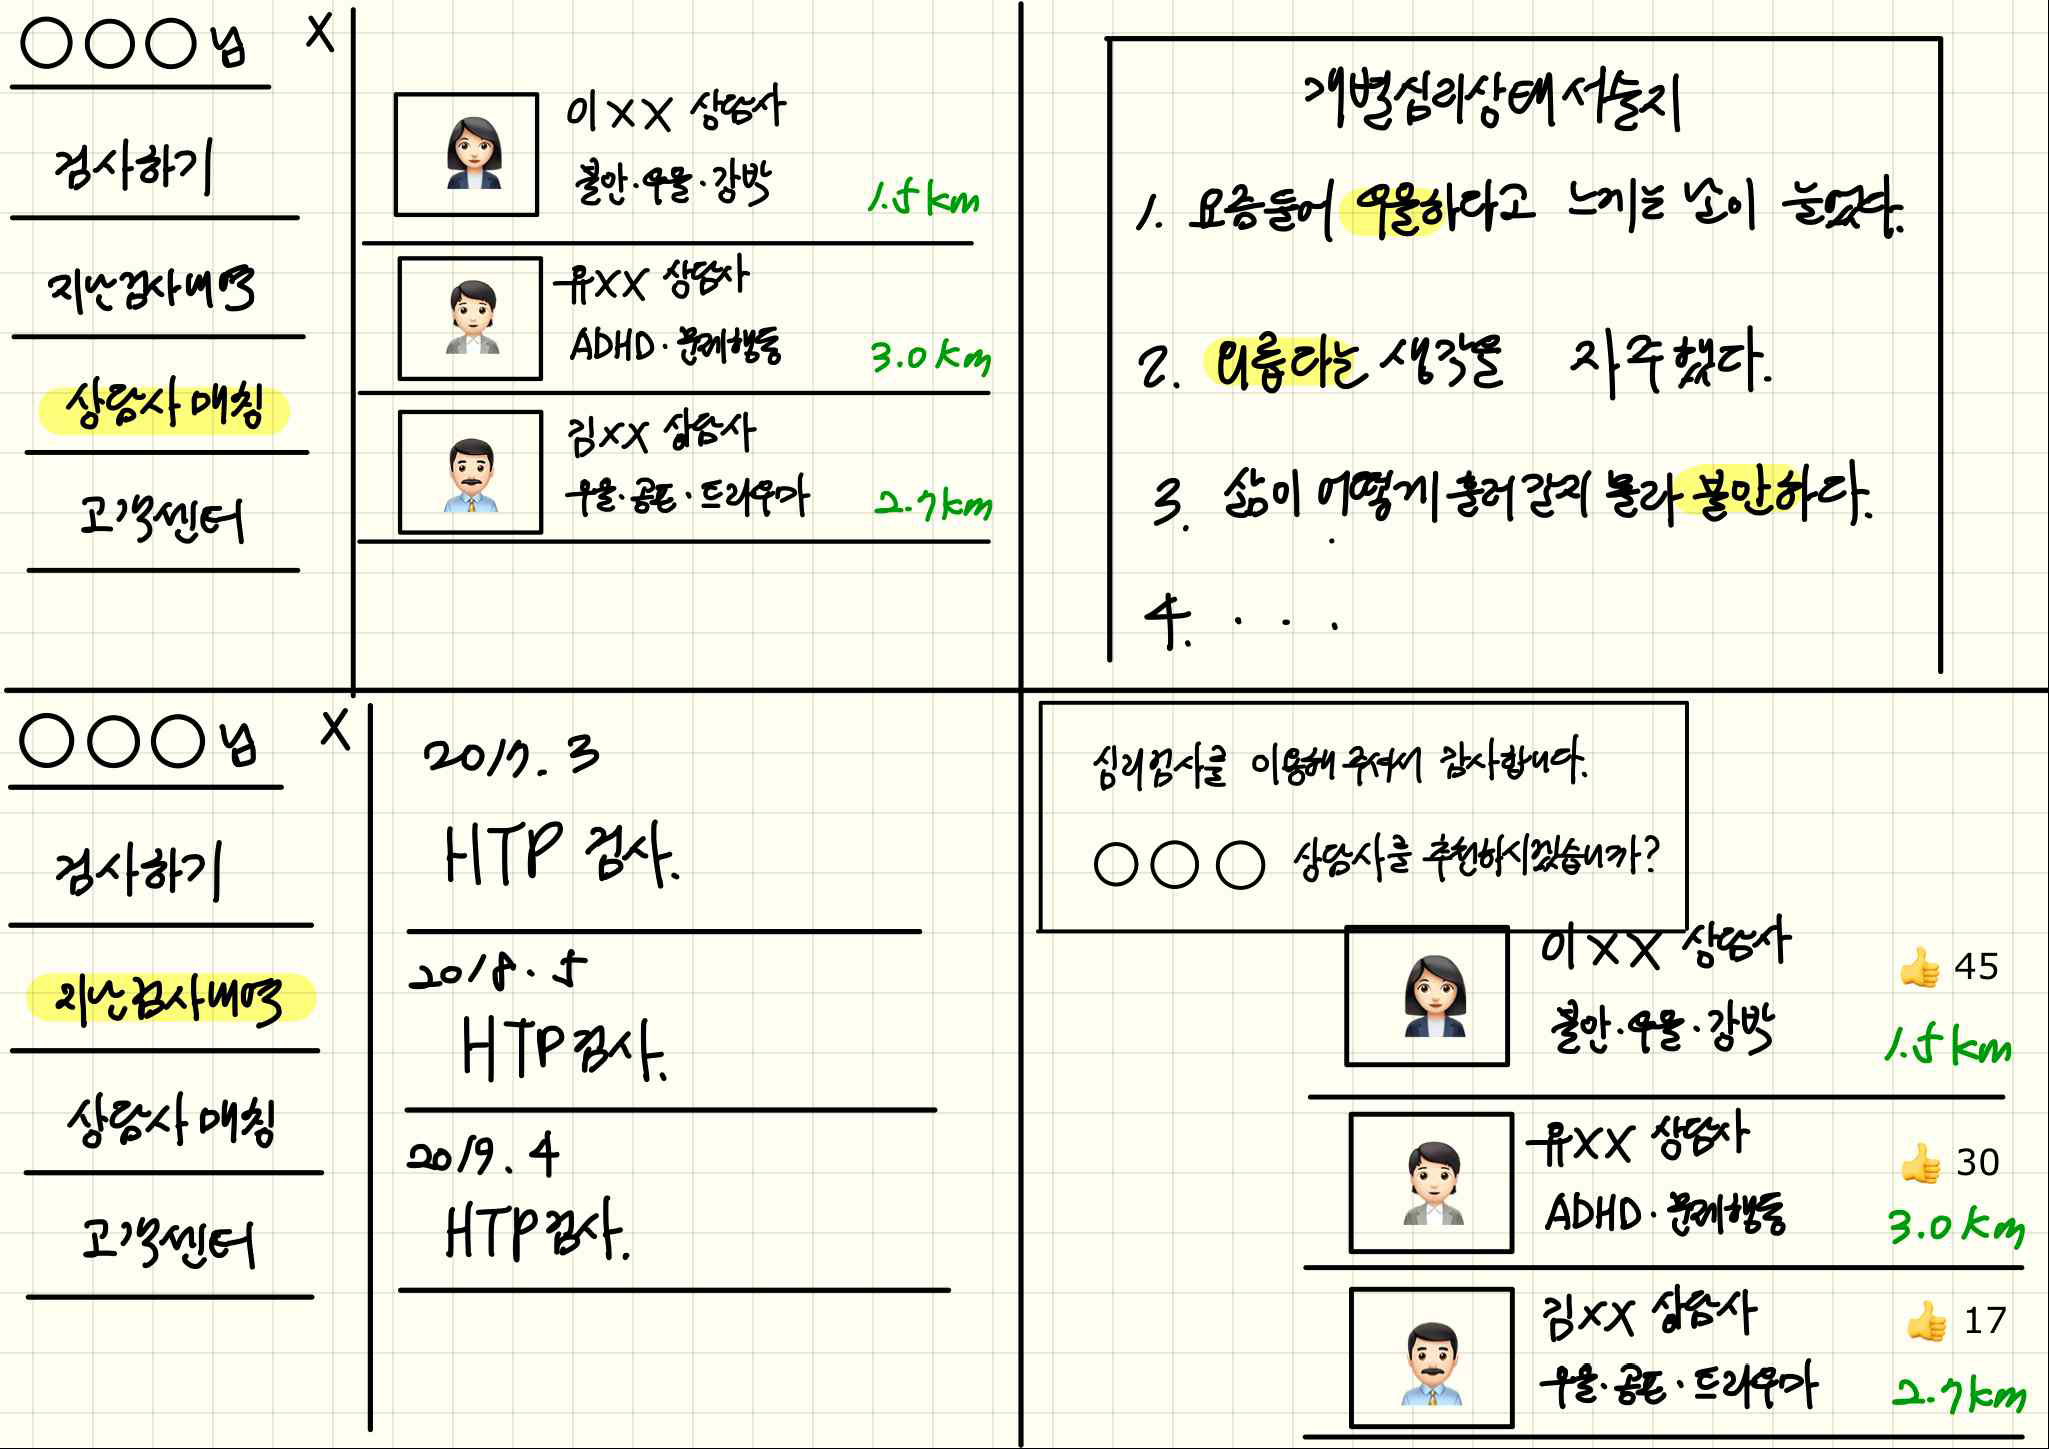 ○○○님 X
검사하기
지난검사내역
상담사 매칭
고객센터
이XX 상담사
불안·우울·강박
1.5km
유XX 상담사
ADHD·문제행동
3.0km
김XX 상담사
우울·공포·트라우마
2.7km
개별심리상태서술지
1. 요즘들어 우울하다고 느끼는 날이 늘었다.
2. 외롭다는 생각을 자주했다.
3. 삶이 어떻게 흘러갈지 몰라 불안하다.
4. . . .
○○○님 X
검사하기
지난검사내역
상담사 매칭
고객센터
2017. 3
HTP 검사.
2018. 5
HTP검사.
2019. 4
HTP검사.
심리검사를 이용해주셔서 감사합니다.
○○○ 상담사를 추천하시겠습니까?
이XX 상담사
👍 45
불안·우울·강박
1.5km
유XX 상담사
👍 30
ADHD·문제행동
3.0km
김XX 상담사
👍 17
우울·공포·트라우마
2.7km